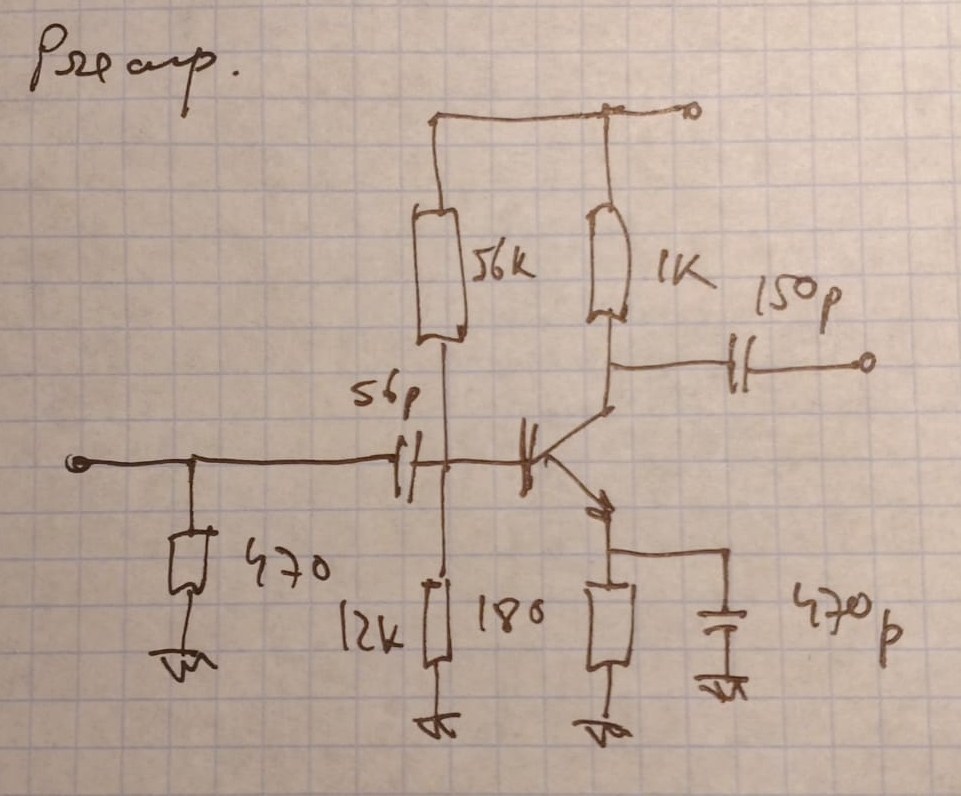 Preamp.
56k
1K
150p
56p
470
12k
180
470p